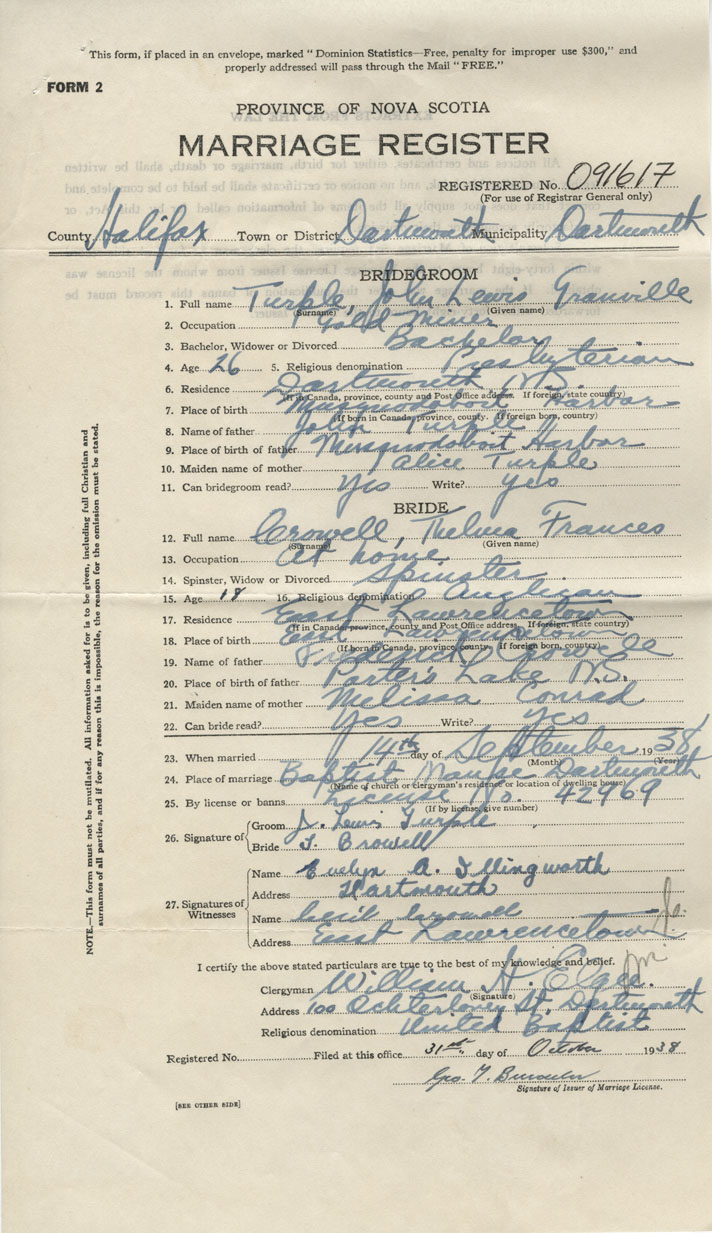 This form, if placed in an envelope, marked "Dominion Statistics—Free, penalty for improper use $300," and
properly addressed will pass through the Mail "FREE."
FORM 2
PROVINCE OF NOVA SCOTIA
MARRIAGE REGISTER
REGISTERED No. 091617
(For use of Registrar General only)
County Halifax Town or District Dartmouth Municipality Dartmouth
BRIDEGROOM
1. Full name Turple, John Lewis Granville
(Surname) (Given name)
2. Occupation Gold Miner
3. Bachelor, Widower or Divorced Bachelor
4. Age 26 5. Religious denomination Presbyterian
6. Residence Dartmouth N.S.
(If in Canada, province, county and Post Office address. If foreign, state country)
7. Place of birth Musquodoboit Harbor
(If born in Canada, province, county. If foreign born, country)
8. Name of father John Turple
9. Place of birth of father Musquodoboit Harbor
10. Maiden name of mother Alice Turple
11. Can bridegroom read? Yes Write? yes
BRIDE
12. Full name Crowell, Thelma Frances
(Surname) (Given name)
13. Occupation at home
14. Spinster, Widow or Divorced Spinster
15. Age 18 16. Religious denomination Anglican
17. Residence East Lawrencetown
(If in Canada, province, county and Post Office address. If foreign, state country)
18. Place of birth East Lawrencetown
(If born in Canada, province, county. If foreign born, country)
19. Name of father Frederick Crowell
20. Place of birth of father Porters Lake N.S.
21. Maiden name of mother Melissa Conrad
22. Can bride read? Yes Write? yes
23. When married 14th day of September 1938
(Month) (Year)
24. Place of marriage Baptist Manse Dartmouth
(Name of church or clergyman's residence or location of dwelling house)
25. By license or banns License No. 42969
(If by license, give number)
26. Signature of
Groom J. Lewis Turple
Bride T. Crowell
27. Signatures of Witnesses
Name Evelyn A. Illingworth
Address Dartmouth
Name Cecil Crowell
Address East Lawrencetown
I certify the above stated particulars are true to the best of my knowledge and belief.
Clergyman William A.
(Signature)
Address 100 Ochterloney St. Dartmouth
Religious denomination United Baptist
Registered No. Filed at this office 31st day of October 1938
Geo. T.
Signature of Issuer of Marriage License.
[SEE OTHER SIDE]
NOTE.—This form must not be mutilated. All information asked for is to be given, including full Christian and
surnames of all parties, and if for any reason this is impossible, the reason for the omission must be stated.